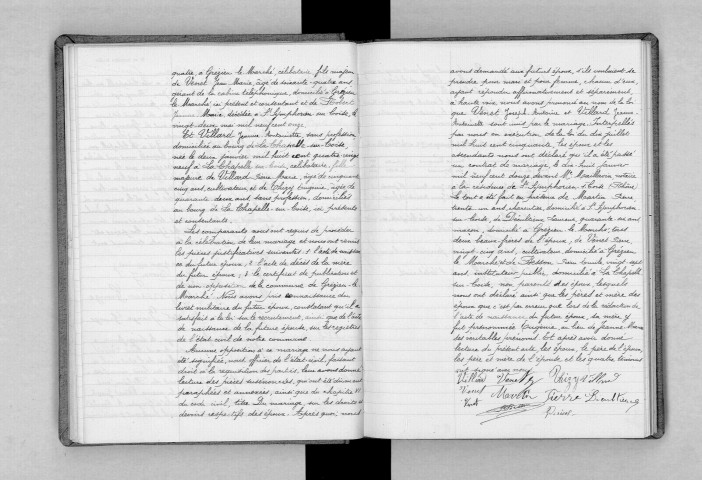 quatre, à Grézieu le Marché, célibataire, fils majeur
de Venet Jean Marie, âgé de soixante-quatre ans
gérant de la cabine téléphonique, domicilié à Grézieu
le Marché ici présent et consentant et de
Jeanne Marie décédée à St Symphorien sur Coise, le
vingt deux mai mil neuf cent onze
Et Villard Jeanne Antoinette, sans profession
domiciliée au bourg de La Chapelle sur Coise,
née le deux janvier mil huit cent quatre vingt
neuf à La Chapelle sur Coise, célibataire, fille
majeure de Villard Jean Marie, âgé de cinquante
cinq ans, cultivateur, et de Thizy Eugénie, âgée de
quarante deux ans sans profession, domiciliés
au bourg de La Chapelle sur Coise, ici présents
et consentants.
Les comparants nous ont requis de procéder
à la célébration de leur mariage et nous ont remis
les pièces justificatives suivantes : 1° l'acte de naissance
du futur époux, 2° l'acte de décès de la mère
du futur époux, 3° le certificat de publication et
de non opposition de la commune de Grézieu le
Marché. Nous avons pris connaissance du
livret militaire du futur époux, constatant qu'il a
satisfait à la loi sur le recrutement, ainsi que de l'acte
de naissance de la future épouse, sur les registres
de l'état civil de notre commune
Aucune opposition à ce mariage ne nous ayant
été signifiée, nous officier de l'état civil, faisant
droit à la réquisition des parties, leur avons donné
lecture des pièces susénoncées, qui ont été dûment
paraphées et annexées, ainsi que du chapitre VI
du code civil, titre Du mariage, sur les droits et
devoirs respectifs des époux. Après quoi, nous
avons demandé aux futurs époux, s'ils voulaient se
prendre pour mari et pour femme, chacun d'eux,
ayant répondu affirmativement et séparément,
à haute voix, nous avons prononcé au nom de la loi
que Venet Joseph Antoine et Villard Jeanne
Antoinette sont unis par le mariage. Interpellés
par nous en exécution de la loi du dix juillet
mil huit cent cinquante, les époux et les
ascendants nous ont déclaré qu'il a été passé
un contrat de mariage, le dix huit janvier
mil neuf cent douze devant Me notaire
à la résidence de St Symphorien s/ Coise (Rhône)
Le tout a été fait en présence de
trente un ans, domicilié à St Symphorien
sur Coise, de quarante six ans
maçon, domicilié à Grézieu le Marché, tous
deux beaux frères de l'époux, de Venet
vingt cinq ans, cultivateur, domicilié à Grézieu
le Marché et de vingt sept
ans, instituteur public, domicilié à La Chapelle
sur Coise, non parents des époux, lesquels
nous ont déclaré ainsi que les pères et mère des
époux que c'est par erreur que lors de la rédaction de
l'acte de naissance du futur époux, sa mère y
fut prénommée Eugénie, au lieu de Jeanne Marie
ses véritables prénoms. Et après avoir donné
lecture du présent acte, les époux, le père de l'époux,
les père et mère de l'épouse, et les quatre témoins
ont signé avec nous
Villard Venet Thizy
Venet Pierre